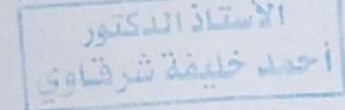 الأستاذ الدكتور
أحمد خليفة شرقاوي